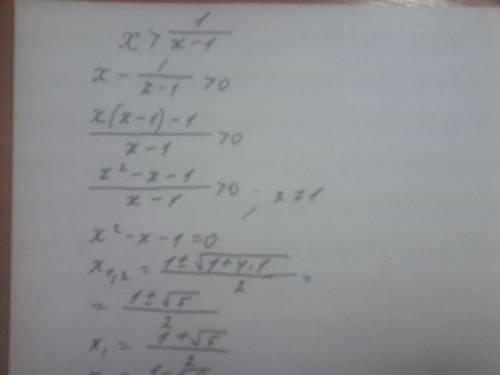 x > 1/(x-1)
x - 1/(x-1) > 0
(x(x-1)-1)/(x-1) > 0
(x²-x-1)/(x-1) > 0 ; x ≠ 1
x²-x-1=0
x₁,₂ = (1±√(1+4·1))/2 =
= (1±√5)/2
x₁ = (1+√5)/2